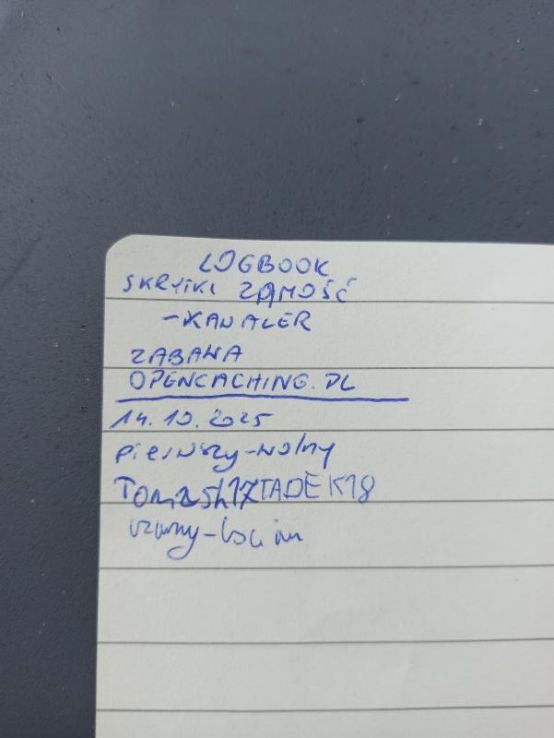 LOGBOOK
SKRYTKI ZAMOŚĆ
-KANALER
ZABAWA
OPENCACHING.PL
14.10.2025
pierwszy-wolny
Tomash17 TADEK18
czarny-bocian